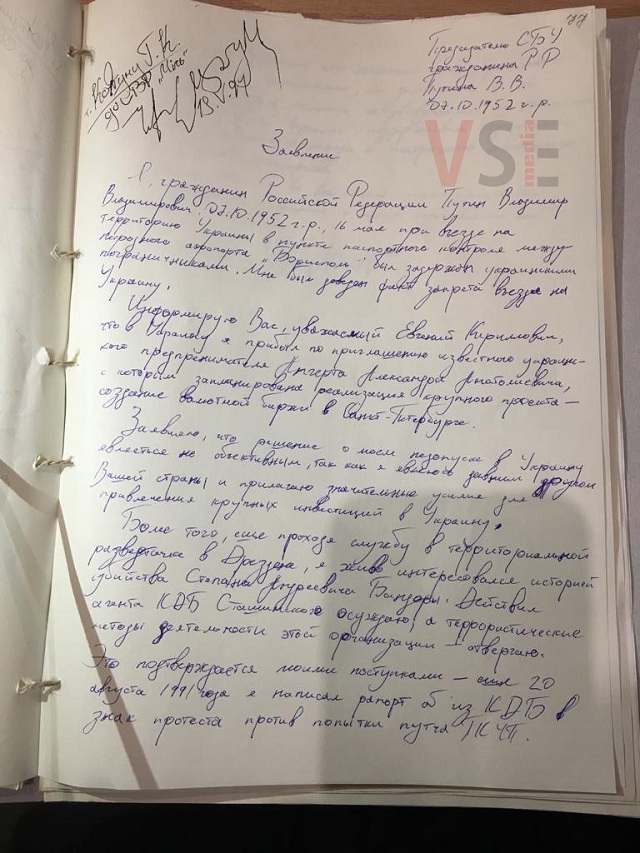 77
т. Кондину Г. К
до СВР "Міль"
13.V.97
Председателю СБУ
Гражданина РФ
Путина В. В.
07.10.1952 г.р.
VSE
media
Заявление
Я, гражданин Российской Федерации Путин Владимир
Владимирович 07.10.1952 г.р., 16 мая при въезде на
территорию Украины в пункте паспортного контроля между-
народного аэропорта "Борисполь" был задержан украинскими
пограничниками. Мне был доведен факт запрета въезда на
Украину.
Информирую Вас, уважаемый Евгений Кирилович,
что в Украину я прибыл по приглашению известного украинс-
кого предпренимателя Ангерта Александра Анатолиевича,
с которым запланирована реализация крупного проекта —
создание валютной биржи в Санкт-Петербурге.
Заявляю, что решение о моем недопуске в Украину
евляеться не объективным, так как я евляюсь давним другом
Вашей страны и прилагаю значительные усилия для
привлечения крупных инвестиций в Украину.
Более того, еще проходя службу в территориальной
разведточке в Дрездене, я живо интересовался историей
убийства Степана Андреевича Бандеры. Действия
агента КДБ Сташинского осуждаю, а террористические
методы деятельности этой организации — отвергаю.
Это подтверждается моими поступками — еще 20
августа 1991 года я написал рапорт об из КДБ в
знак протеста против попытки путча ГКЧП.